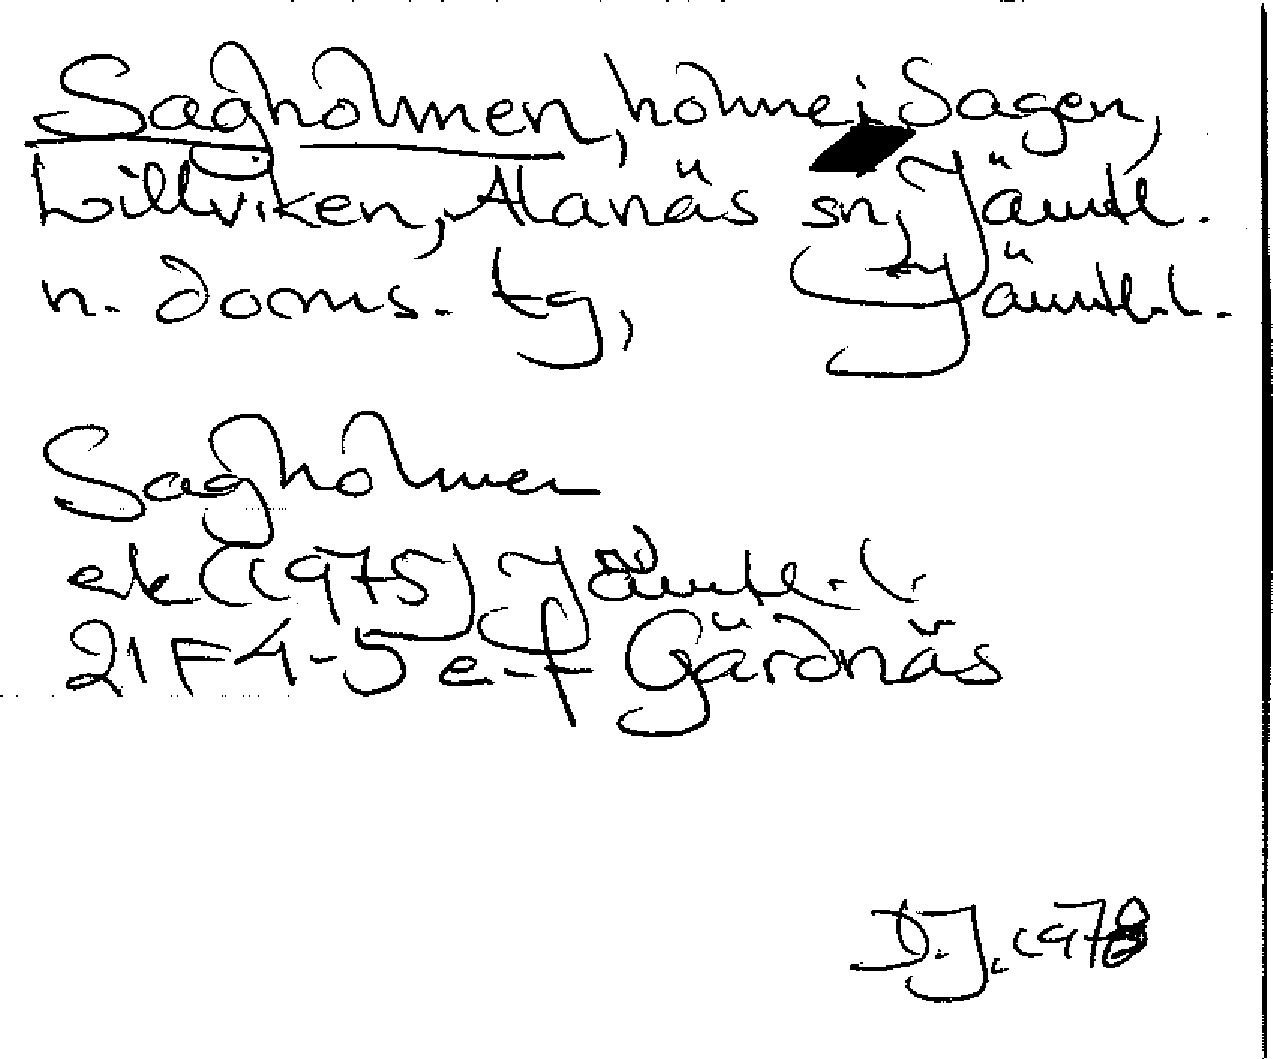 Sagholmen, holme i Sagen,
Lillviken, Alanäs sn, Jämtl.
n. doms. tg, Jämtl.l.
Sagholmen
ek (1975) Jämtl.l.
21F 4-5 e-f Gärdnäs
D.J. 1978